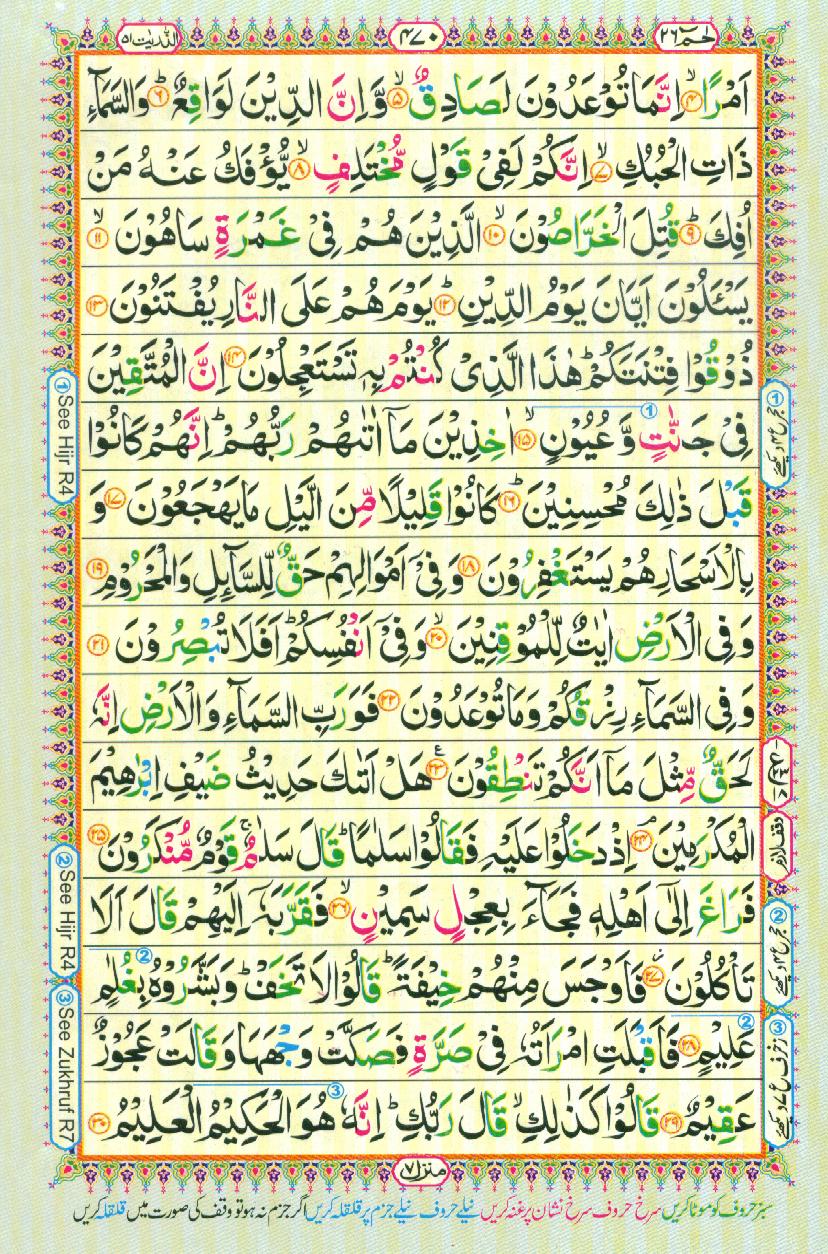 حٰمٓ ٢٦
٤٧٠
الذّٰریٰت ٥١
اَمْرًا ۙ﴿٤﴾ اِنَّمَا تُوْعَدُوْنَ لَصَادِقٌ ۙ﴿٥﴾ وَّاِنَّ الدِّيْنَ لَوَاقِعٌ ؕ﴿٦﴾ وَالسَّمَآءِ
ذَاتِ الْحُبُكِ ۙ﴿٧﴾ اِنَّكُمْ لَفِيْ قَوْلٍ مُّخْتَلِفٍ ۙ﴿٨﴾ يُّؤْفَكُ عَنْهُ مَنْ
اُفِكَ ؕ﴿٩﴾ قُتِلَ الْخَرّٰصُوْنَ ۙ﴿١٠﴾ الَّذِيْنَ هُمْ فِيْ غَمْرَةٍ سَاهُوْنَ ۙ﴿١١﴾
يَسْـَٔلُوْنَ اَيَّانَ يَوْمُ الدِّيْنِ ؕ﴿١٢﴾ يَوْمَ هُمْ عَلَى النَّارِ يُفْتَنُوْنَ ﴿١٣﴾
ذُوْقُوْا فِتْنَتَكُمْ ؕ هٰذَا الَّذِيْ كُنْتُمْ بِهٖ تَسْتَعْجِلُوْنَ ﴿١٤﴾ اِنَّ الْمُتَّقِيْنَ
فِيْ جَنّٰتٍ وَّعُيُوْنٍ ۙ﴿١٥﴾ اٰخِذِيْنَ مَآ اٰتٰىهُمْ رَبُّهُمْ ؕ اِنَّهُمْ كَانُوْا
قَبْلَ ذٰلِكَ مُحْسِنِيْنَ ؕ﴿١٦﴾ كَانُوْا قَلِيْلًا مِّنَ الَّيْلِ مَا يَهْجَعُوْنَ ﴿١٧﴾ وَ
بِالْاَسْحَارِ هُمْ يَسْتَغْفِرُوْنَ ﴿١٨﴾ وَفِيْٓ اَمْوَالِهِمْ حَقٌّ لِّلسَّآئِلِ وَالْمَحْرُوْمِ ﴿١٩﴾
وَفِي الْاَرْضِ اٰيٰتٌ لِّلْمُوْقِنِيْنَ ۙ﴿٢٠﴾ وَفِيْٓ اَنْفُسِكُمْ ؕ اَفَلَا تُبْصِرُوْنَ ﴿٢١﴾
وَفِي السَّمَآءِ رِزْقُكُمْ وَمَا تُوْعَدُوْنَ ﴿٢٢﴾ فَوَرَبِّ السَّمَآءِ وَالْاَرْضِ اِنَّهٗ
لَحَقٌّ مِّثْلَ مَآ اَنَّكُمْ تَنْطِقُوْنَ ﴿٢٣﴾ هَلْ اَتٰىكَ حَدِيْثُ ضَيْفِ اِبْرٰهِيْمَ
الْمُكْرَمِيْنَ ۘ﴿٢٤﴾ اِذْ دَخَلُوْا عَلَيْهِ فَقَالُوْا سَلٰمًا ؕ قَالَ سَلٰمٌ ۚ قَوْمٌ مُّنْكَرُوْنَ ﴿٢٥﴾
فَرَاغَ اِلٰٓى اَهْلِهٖ فَجَآءَ بِعِجْلٍ سَمِيْنٍ ۙ﴿٢٦﴾ فَقَرَّبَهٗٓ اِلَيْهِمْ قَالَ اَلَا
تَاْكُلُوْنَ ۫﴿٢٧﴾ فَاَوْجَسَ مِنْهُمْ خِيْفَةً ؕ قَالُوْا لَا تَخَفْ ؕ وَبَشَّرُوْهُ بِغُلٰمٍ
عَلِيْمٍ ﴿٢٨﴾ فَاَقْبَلَتِ امْرَاَتُهٗ فِيْ صَرَّةٍ فَصَكَّتْ وَجْهَهَا وَقَالَتْ عَجُوْزٌ
عَقِيْمٌ ﴿٢٩﴾ قَالُوْا كَذٰلِكِ ۙ قَالَ رَبُّكِ ؕ اِنَّهٗ هُوَ الْحَكِيْمُ الْعَلِيْمُ ﴿٣٠﴾
① See Hijr R4
② See Hijr R4
③ See Zukhruf R7
وقف لازم
منزل ٧
سبز حروف کو موٹا کریں سرخ حروف سرخ نشان پر غنہ کریں نیلے حروف نیلے جزم پر قلقلہ کریں اگر جزم نہ ہو تو وقف کی صورت میں قلقلہ کریں